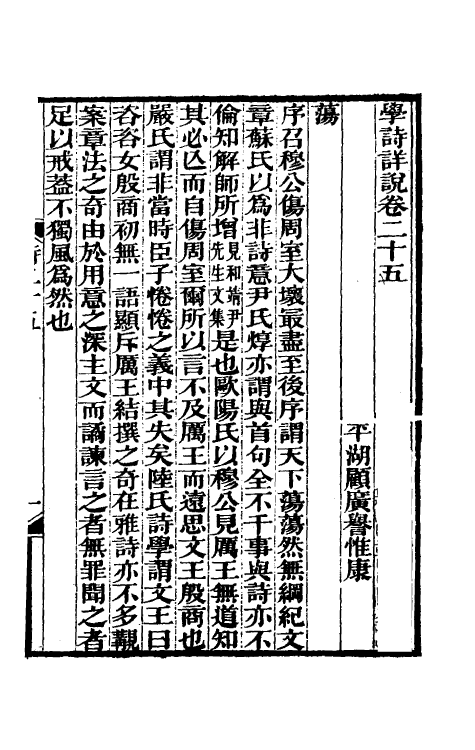 學詩詳說卷二十五
平湖顧廣譽惟康
蕩
序召穆公傷周室大壞最盡至後序謂天下蕩蕩然無綱紀文
章蘇氏以為非詩意尹氏焞亦謂與首句全不干事與詩亦不
倫知解師所增見和靖尹先生文集是也歐陽氏以穆公見厲王無道知
其必亾而自傷周室爾所以言不及厲王而遠思文王殷商也
嚴氏謂非當時臣子惓惓之義中其失矣陸氏詩學謂文王曰
咨咨女殷商初無一語顯斥厲王結撰之奇在雅詩亦不多覯
案章法之奇由於用意之深主文而譎諫言之者無罪聞之者
足以戒葢不獨風為然也